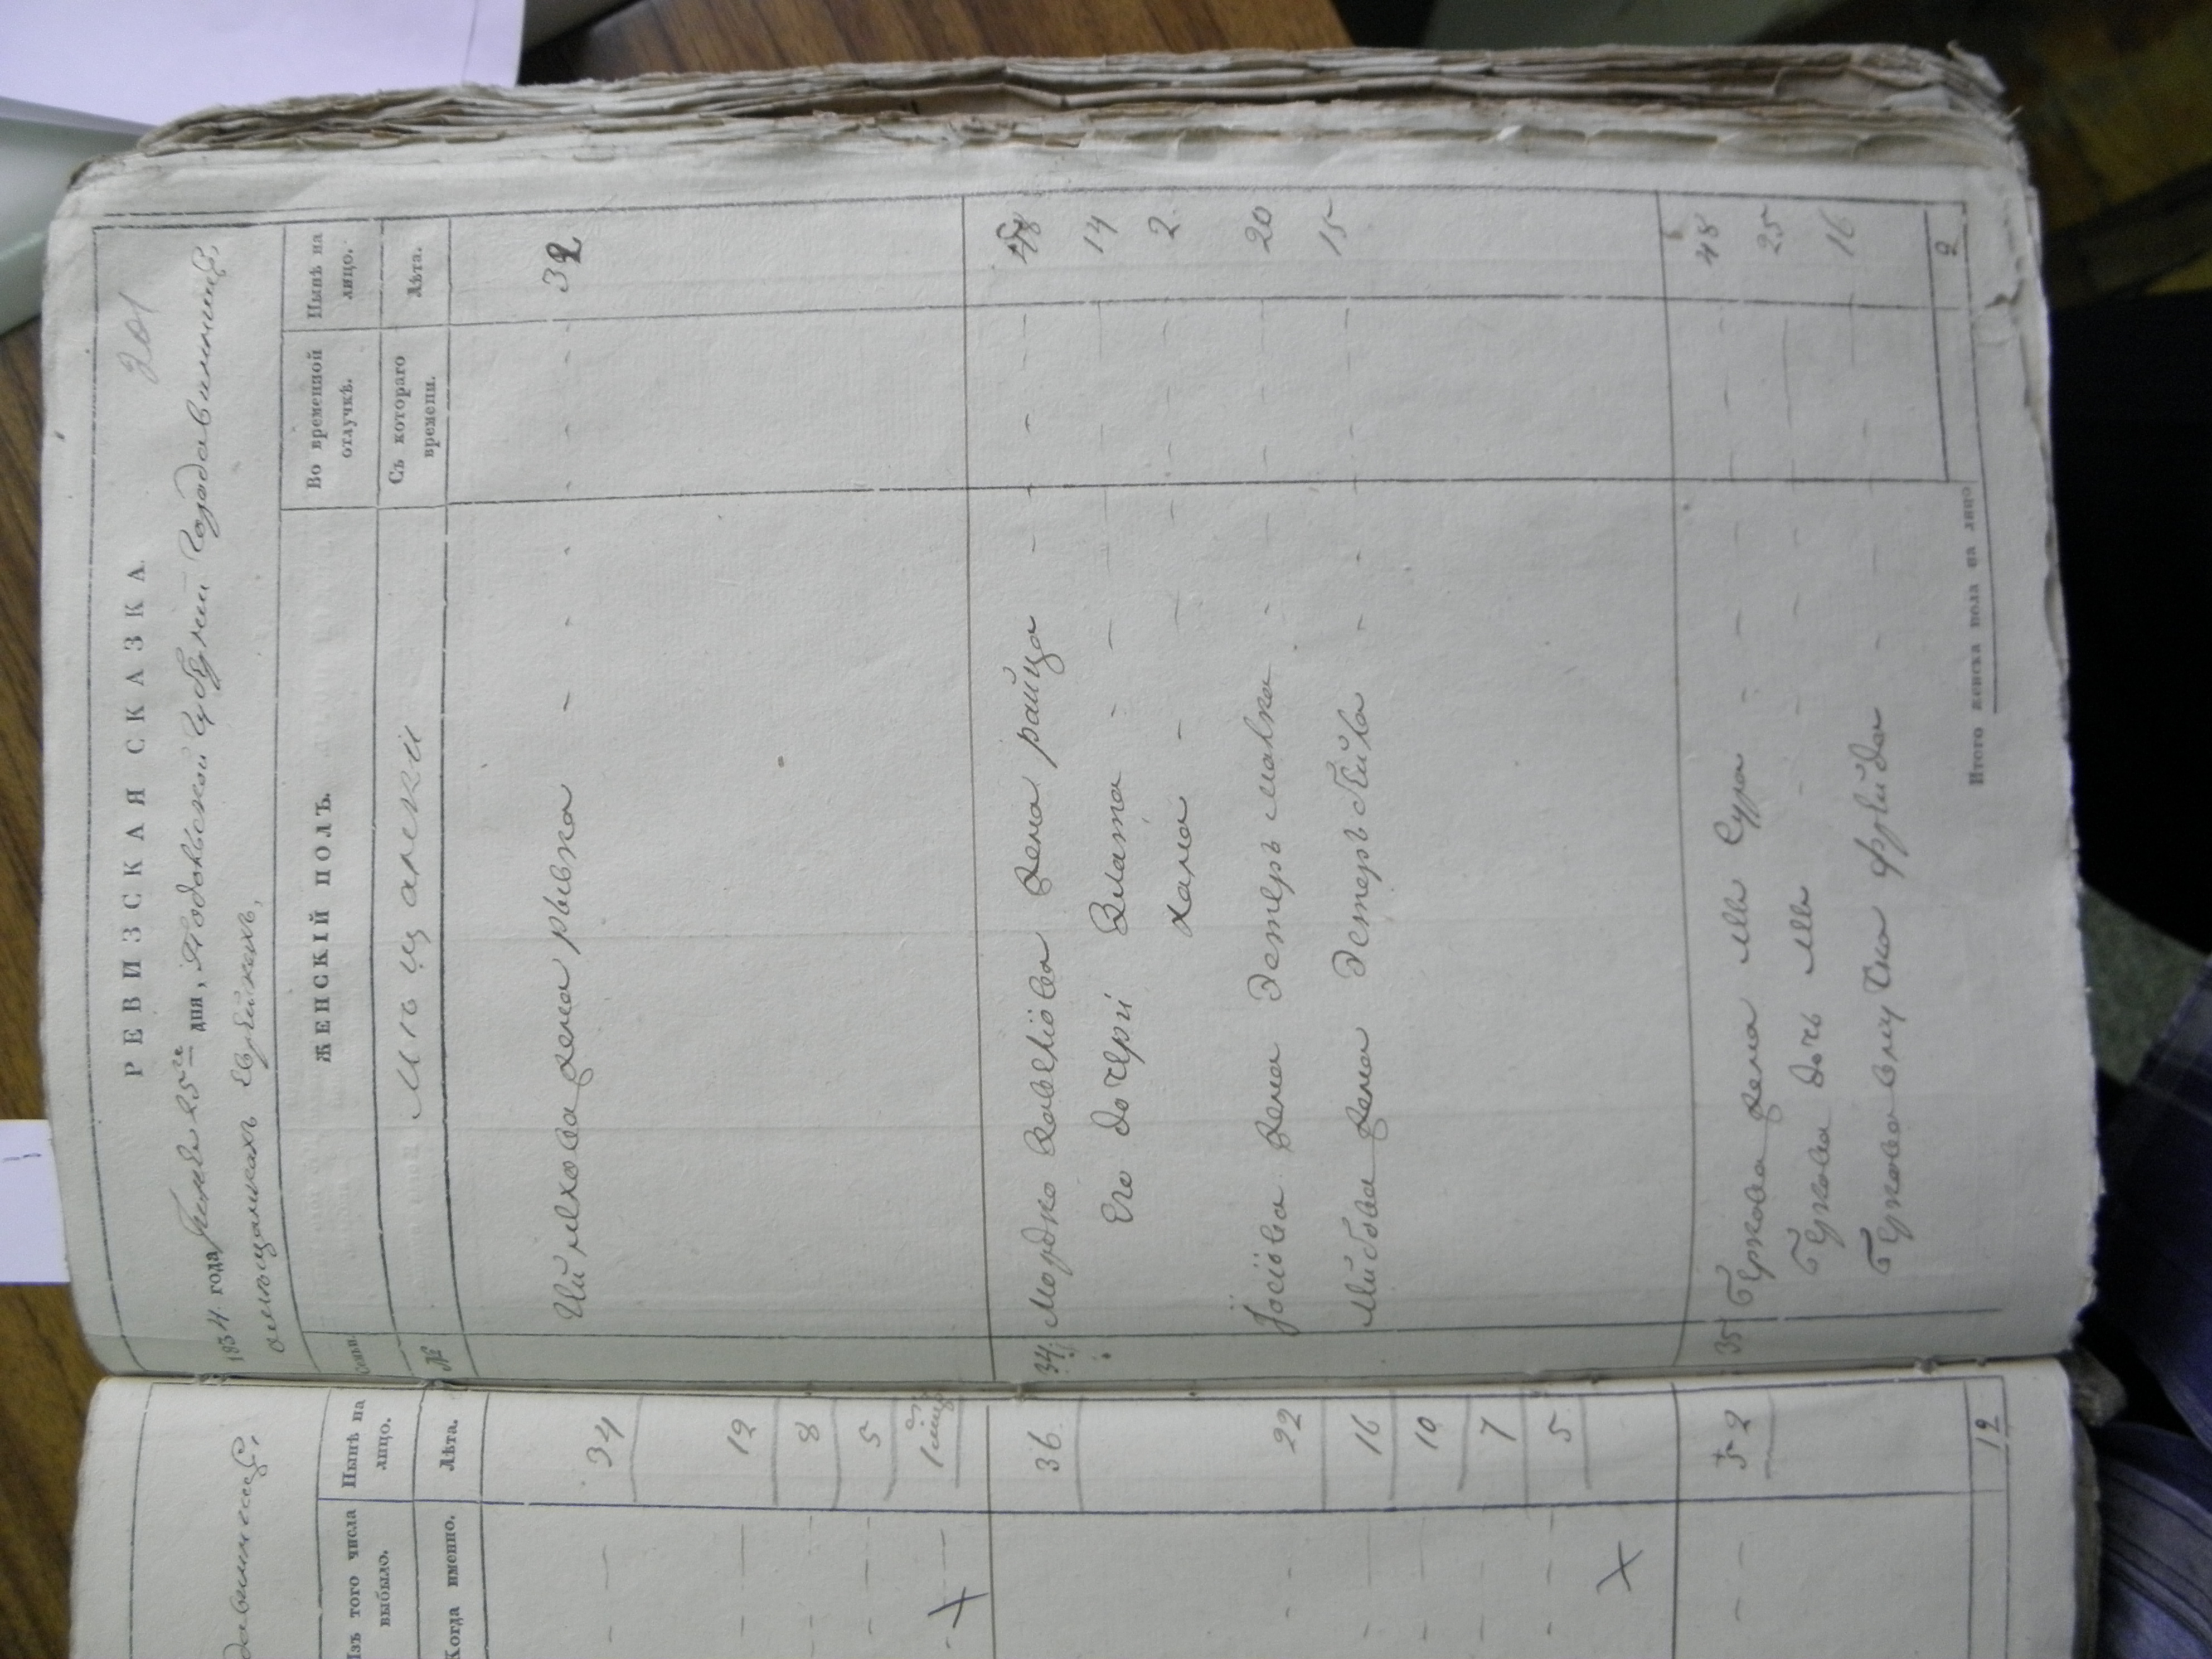 201
РЕВИЗСКАЯ СКАЗКА.
1834 года 25го дня, Подольской Губернии Города Винницы,
омещанахъ Еврейскихъ,
Семьи
ЖЕНСКІЙ ПОЛЪ.
Во временной отлучкѣ.
Нынѣ на лицо.
№
Мѣщанки
Съ котораго времени.
Лѣта.
жена рывка - - - - - 32
34. Мордко жена райца - - - - 48
Его дочери Злата - - - - 14
хана - - - - 2
Іосіова жена Эстеръ малка - - - - 20
Лейбова жена Эстеръ бейла - - - - 15
35 Беркова жена Сура - - - - 48
Беркова дочь - - - - 25
Беркова внучка фрейда - - - - 16
Итого женска пола на лицо 9
Изъ того числа выбыло.
Нынѣ на лицо.
Когда именно.
Лѣта.
34
12
8
5
36.
22
16
10
7
5
52
12